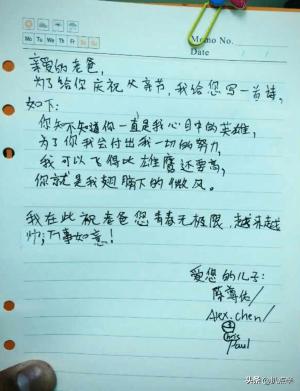 Memo No.
Mo Tu We Th Fr Sa Su
Date
亲爱的老爸,
为了给你庆祝父亲节,我给您写一首诗,
如下:
你知不知道你一直是我心目中的英雄,
为了你我会付出我一切的努力,
我可以飞得比雄鹰还要高,
你就是我翅膀下的微风。
我在此祝老爸您青春无极限,越来越
帅,万事如意!
爱您的儿子:
陈尊佑/
Alex.chen/
Chris
Paul